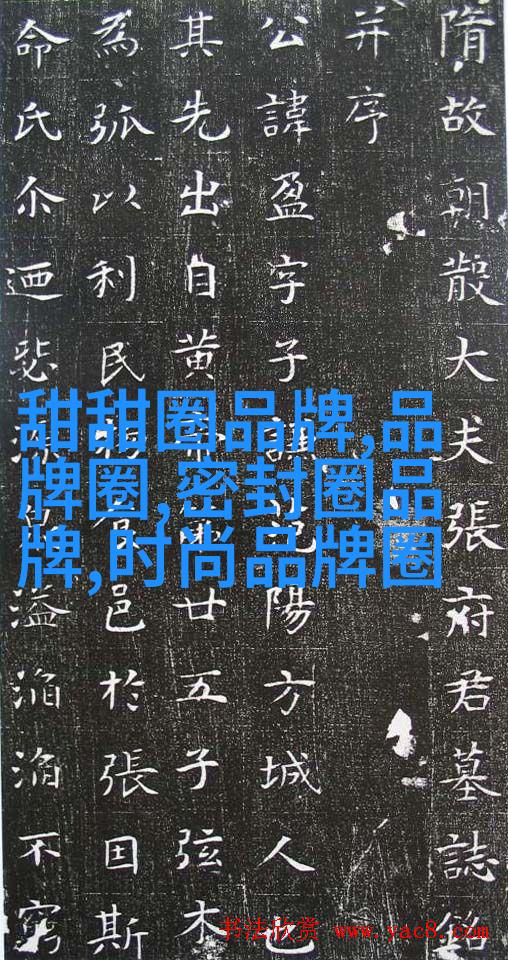 隋故朝散大夫張府君墓誌銘
并序
公諱盈字子謙陽方城人也
其先出自黄帝廿五子弦木
為弧以利民邑於張因斯
命氏尒迺溢滔滔不窮
甜甜圈品牌,品
牌圈,密封圈品
牌,时尚品牌圈
书法欣赏 www.yac8.com